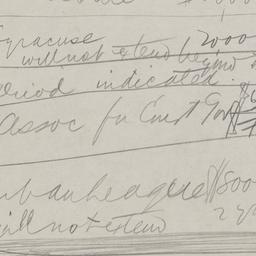 Syracuse 2000
will not extend beyond
period indicated.
Assoc for Const Govt
Urban League 800
will not extend 2 y